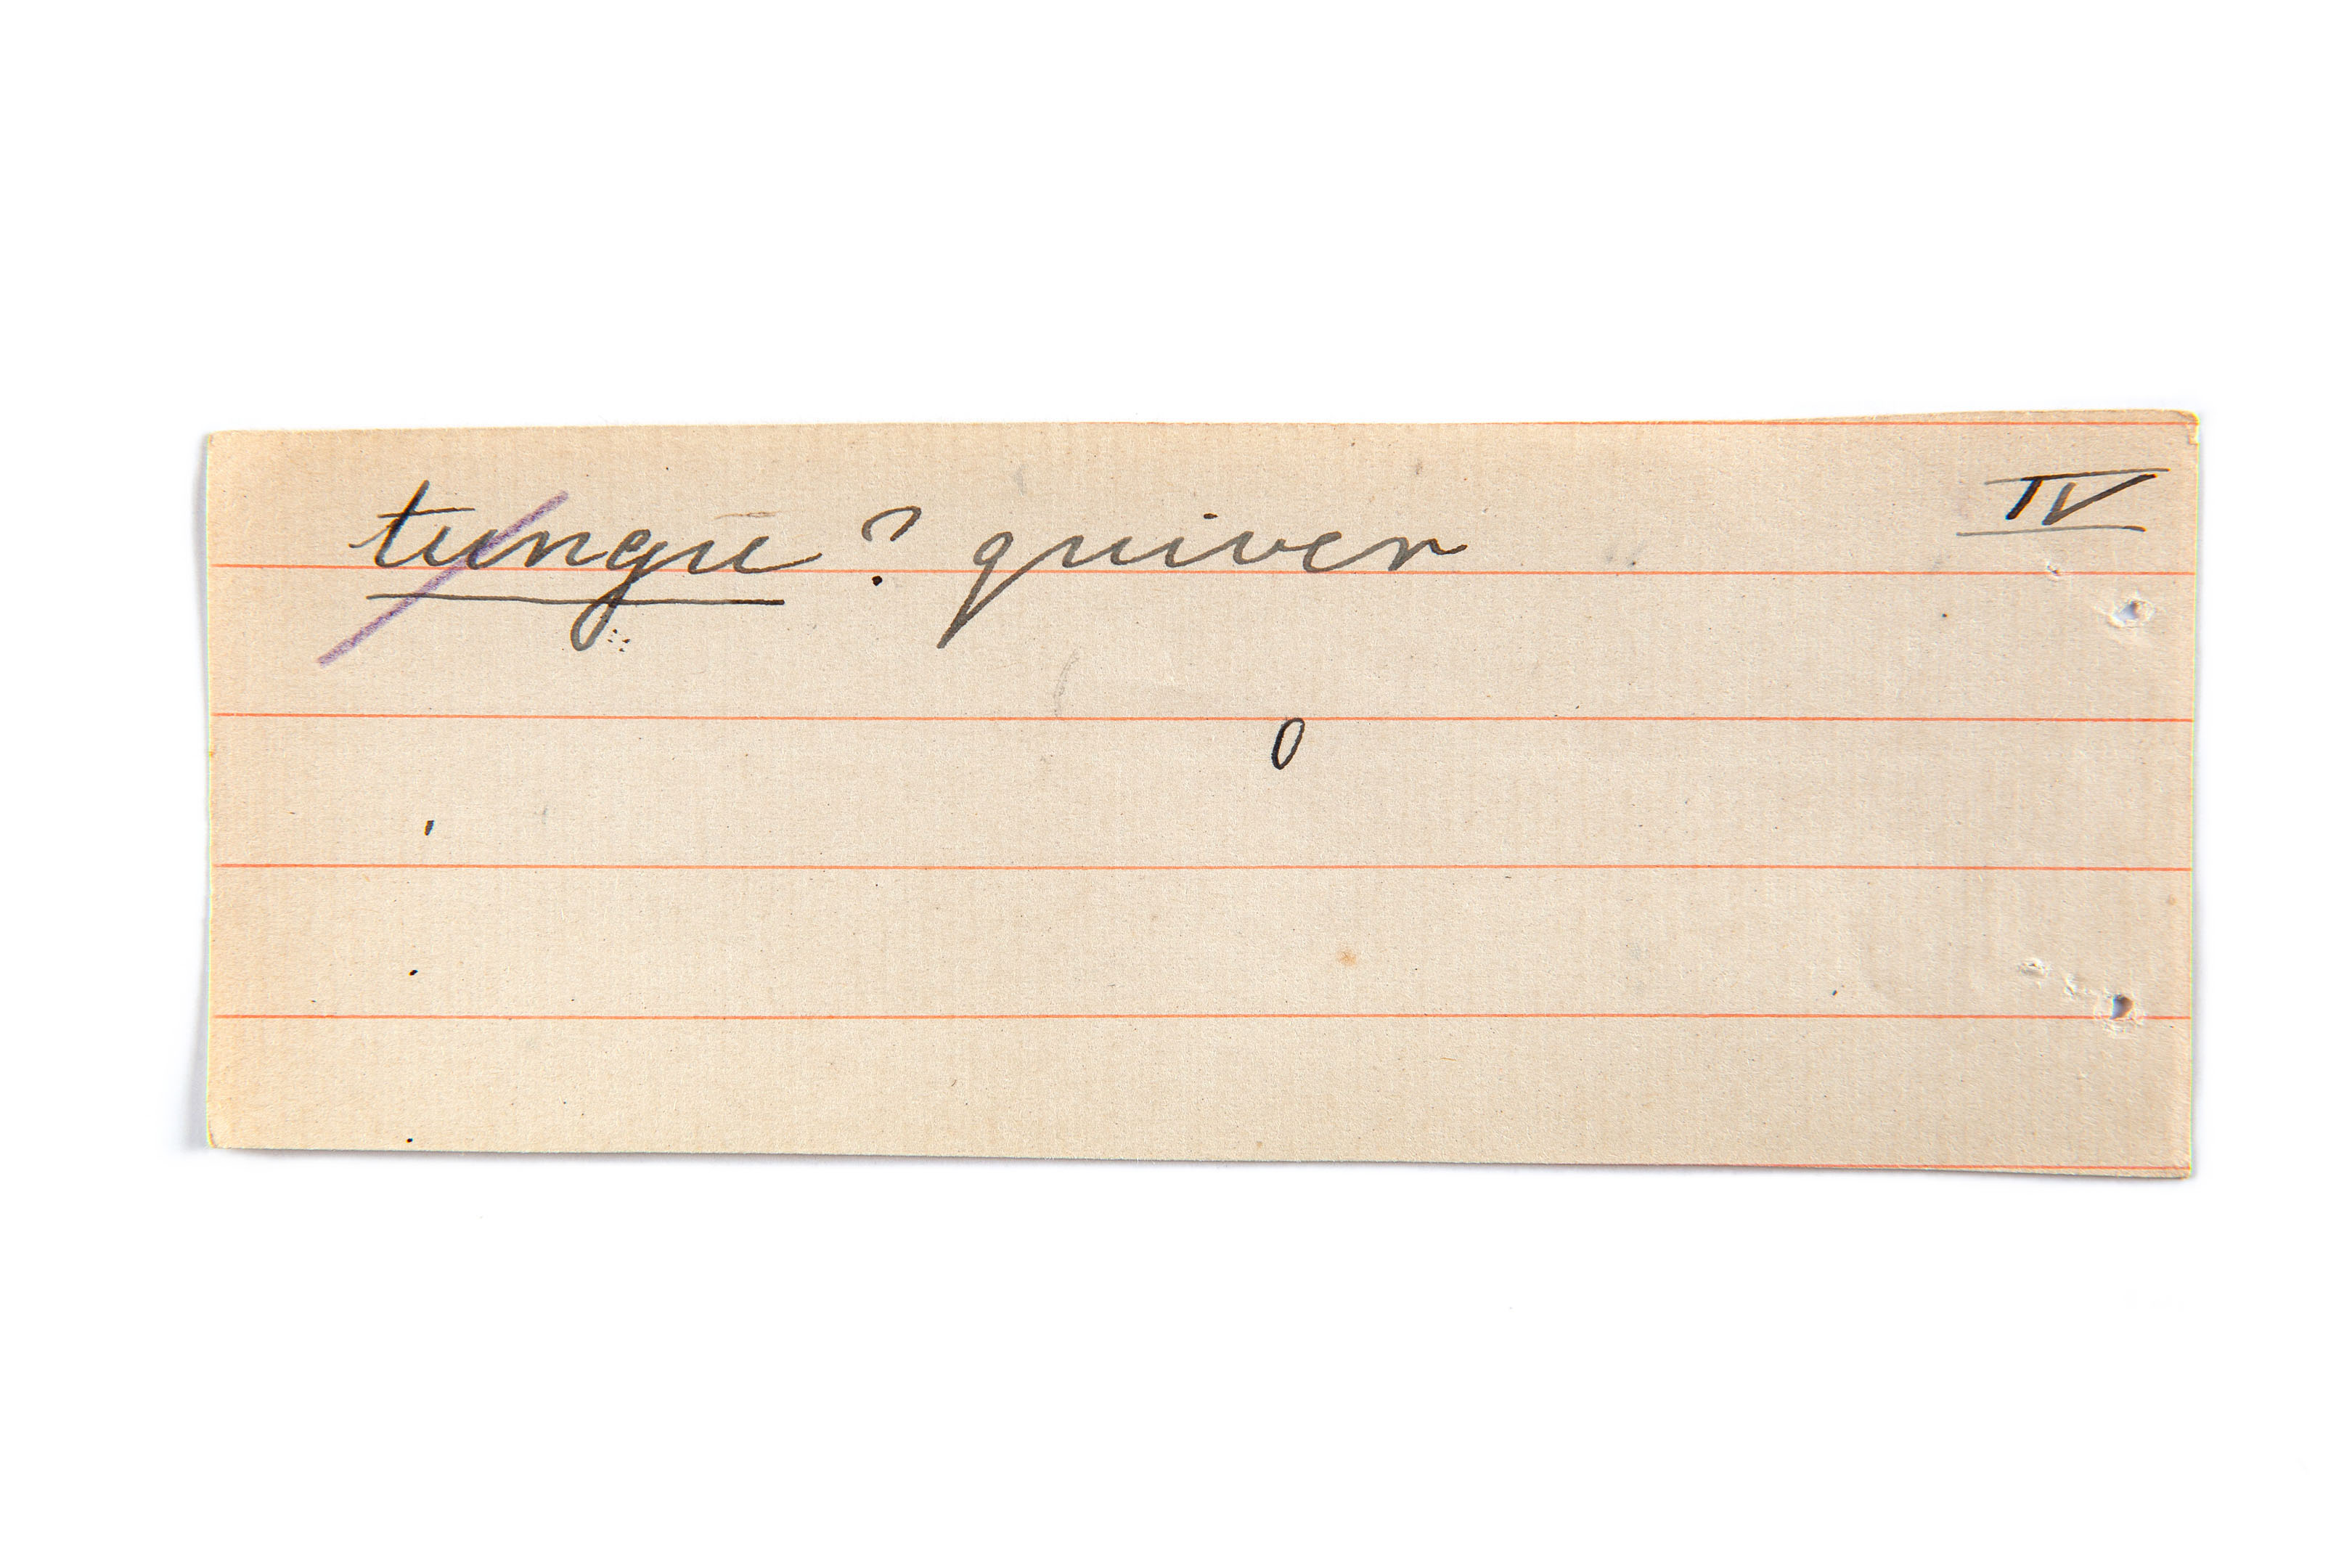 tungū ? quiver IV
0